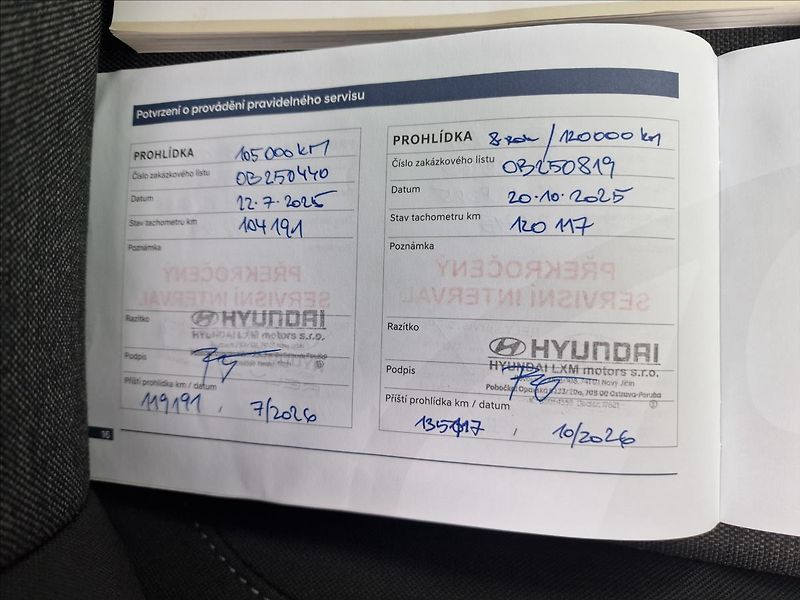 Potvrzení o provádění pravidelného servisu
PROHLÍDKA 105 000 KM
Číslo zakázkového listu OB250440
Datum 22.7.2025
Stav tachometru km 104191
Poznámka
PŘEKROČENÝ
SERVISNÍ INTERVAL
Razítko HYUNDAI
HYUNDAI LXM motors s.r.o.
Podpis
Příští prohlídka km / datum
119191 , 7/2026
16
PROHLÍDKA 8 rok / 120000 km
Číslo zakázkového listu OB250819
Datum 20.10.2025
Stav tachometru km 120 117
Poznámka
PŘEKROČENÝ
SERVISNÍ INTERVAL
Razítko
HYUNDAI
HYUNDAI LXM motors s.r.o.
Podpis
Nový Jičín
Ostrava-Poruba
Příští prohlídka km / datum
135117 , 10/2026